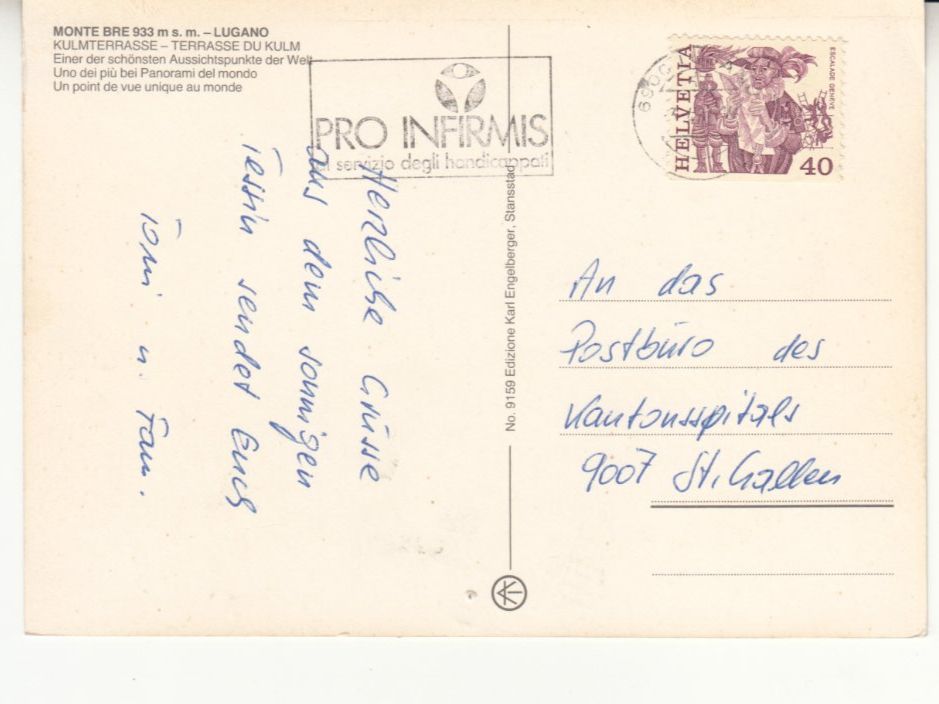 MONTE BRE 933 m s. m. – LUGANO
KULMTERRASSE – TERRASSE DU KULM
Einer der schönsten Aussichtspunkte der Welt
Uno dei più bei Panorami del mondo
Un point de vue unique au monde
PRO INFIRMIS
al servizio degli handicappati
HELVETIA
ESCALADE GENÈVE
40
Herzliche Grüsse
aus dem sonnigen
Tessin sendet Euch
Toni u. Fam.
No. 9159 Edizione Karl Engelberger, Stansstad
An das
Postbüro des
Kantonsspitals
9007 St. Gallen